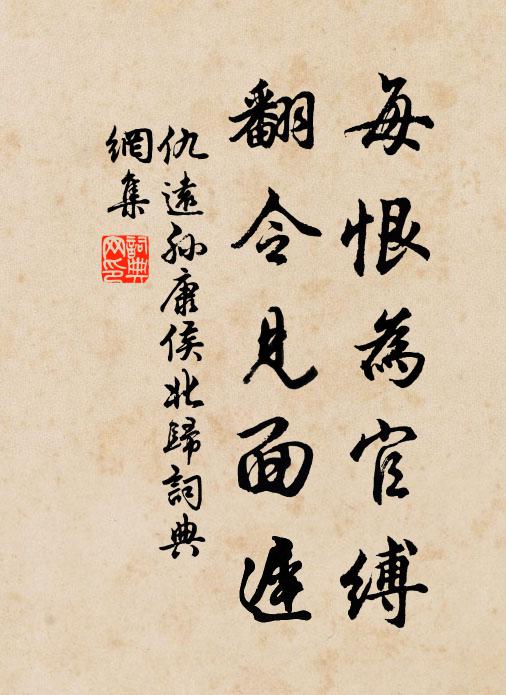 每恨為官縛
翻令見面遲
仇遠孫康侯北歸詞典
網集
詞典
网印